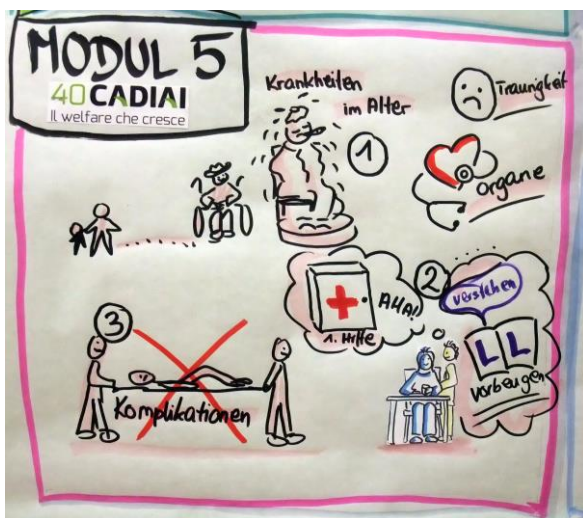 MODUL 5
40 CADIAI
Il welfare che cresce
Krankheiten
im Alter
1
Traurigkeit
Organe
2
verstehen
AHA!
1. Hilfe
L L
vorbeugen
3
Komplikationen